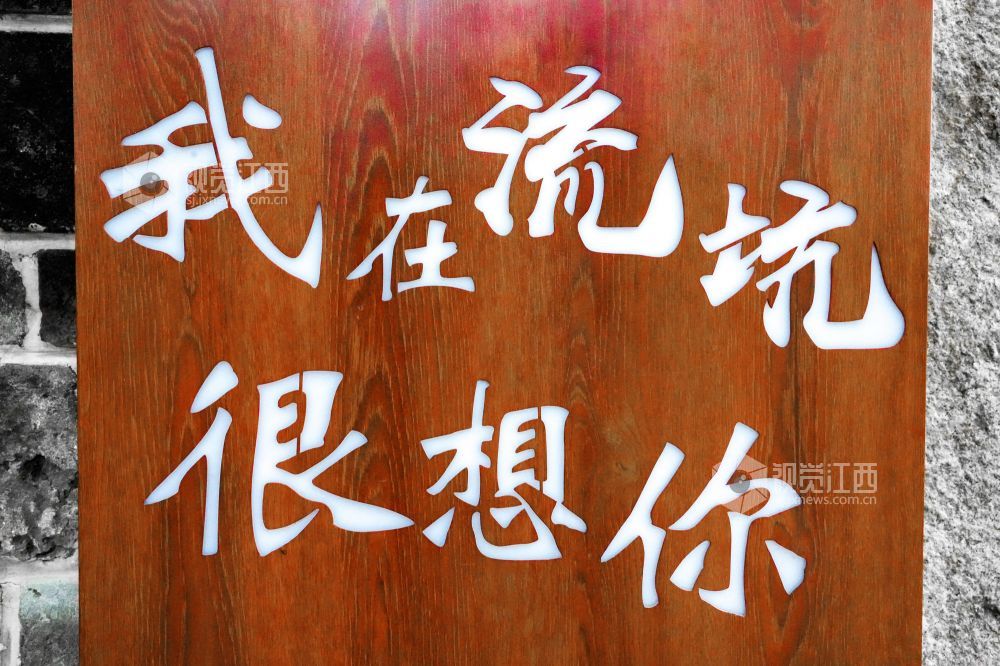 我在流坑
很想你
视觉江西
sj.jxnews.com.cn
视觉江西
sj.jxnews.com.cn